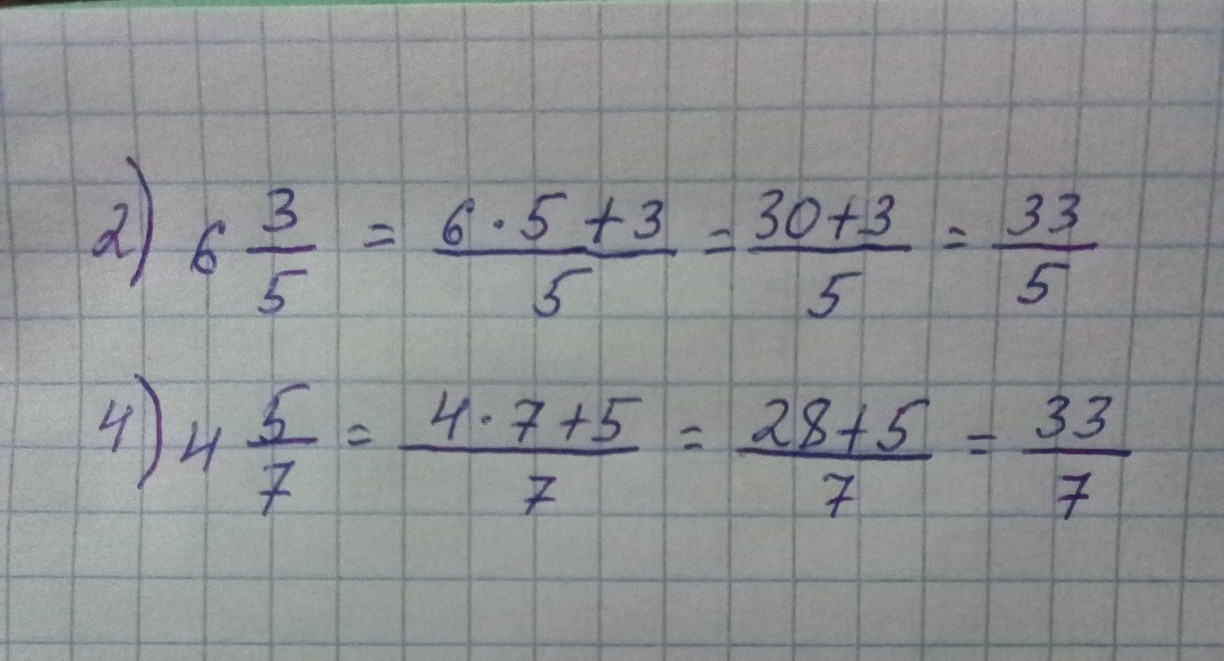 2) 6 3/5 = (6·5+3)/5 = (30+3)/5 = 33/5
4) 4 5/7 = (4·7+5)/7 = (28+5)/7 = 33/7